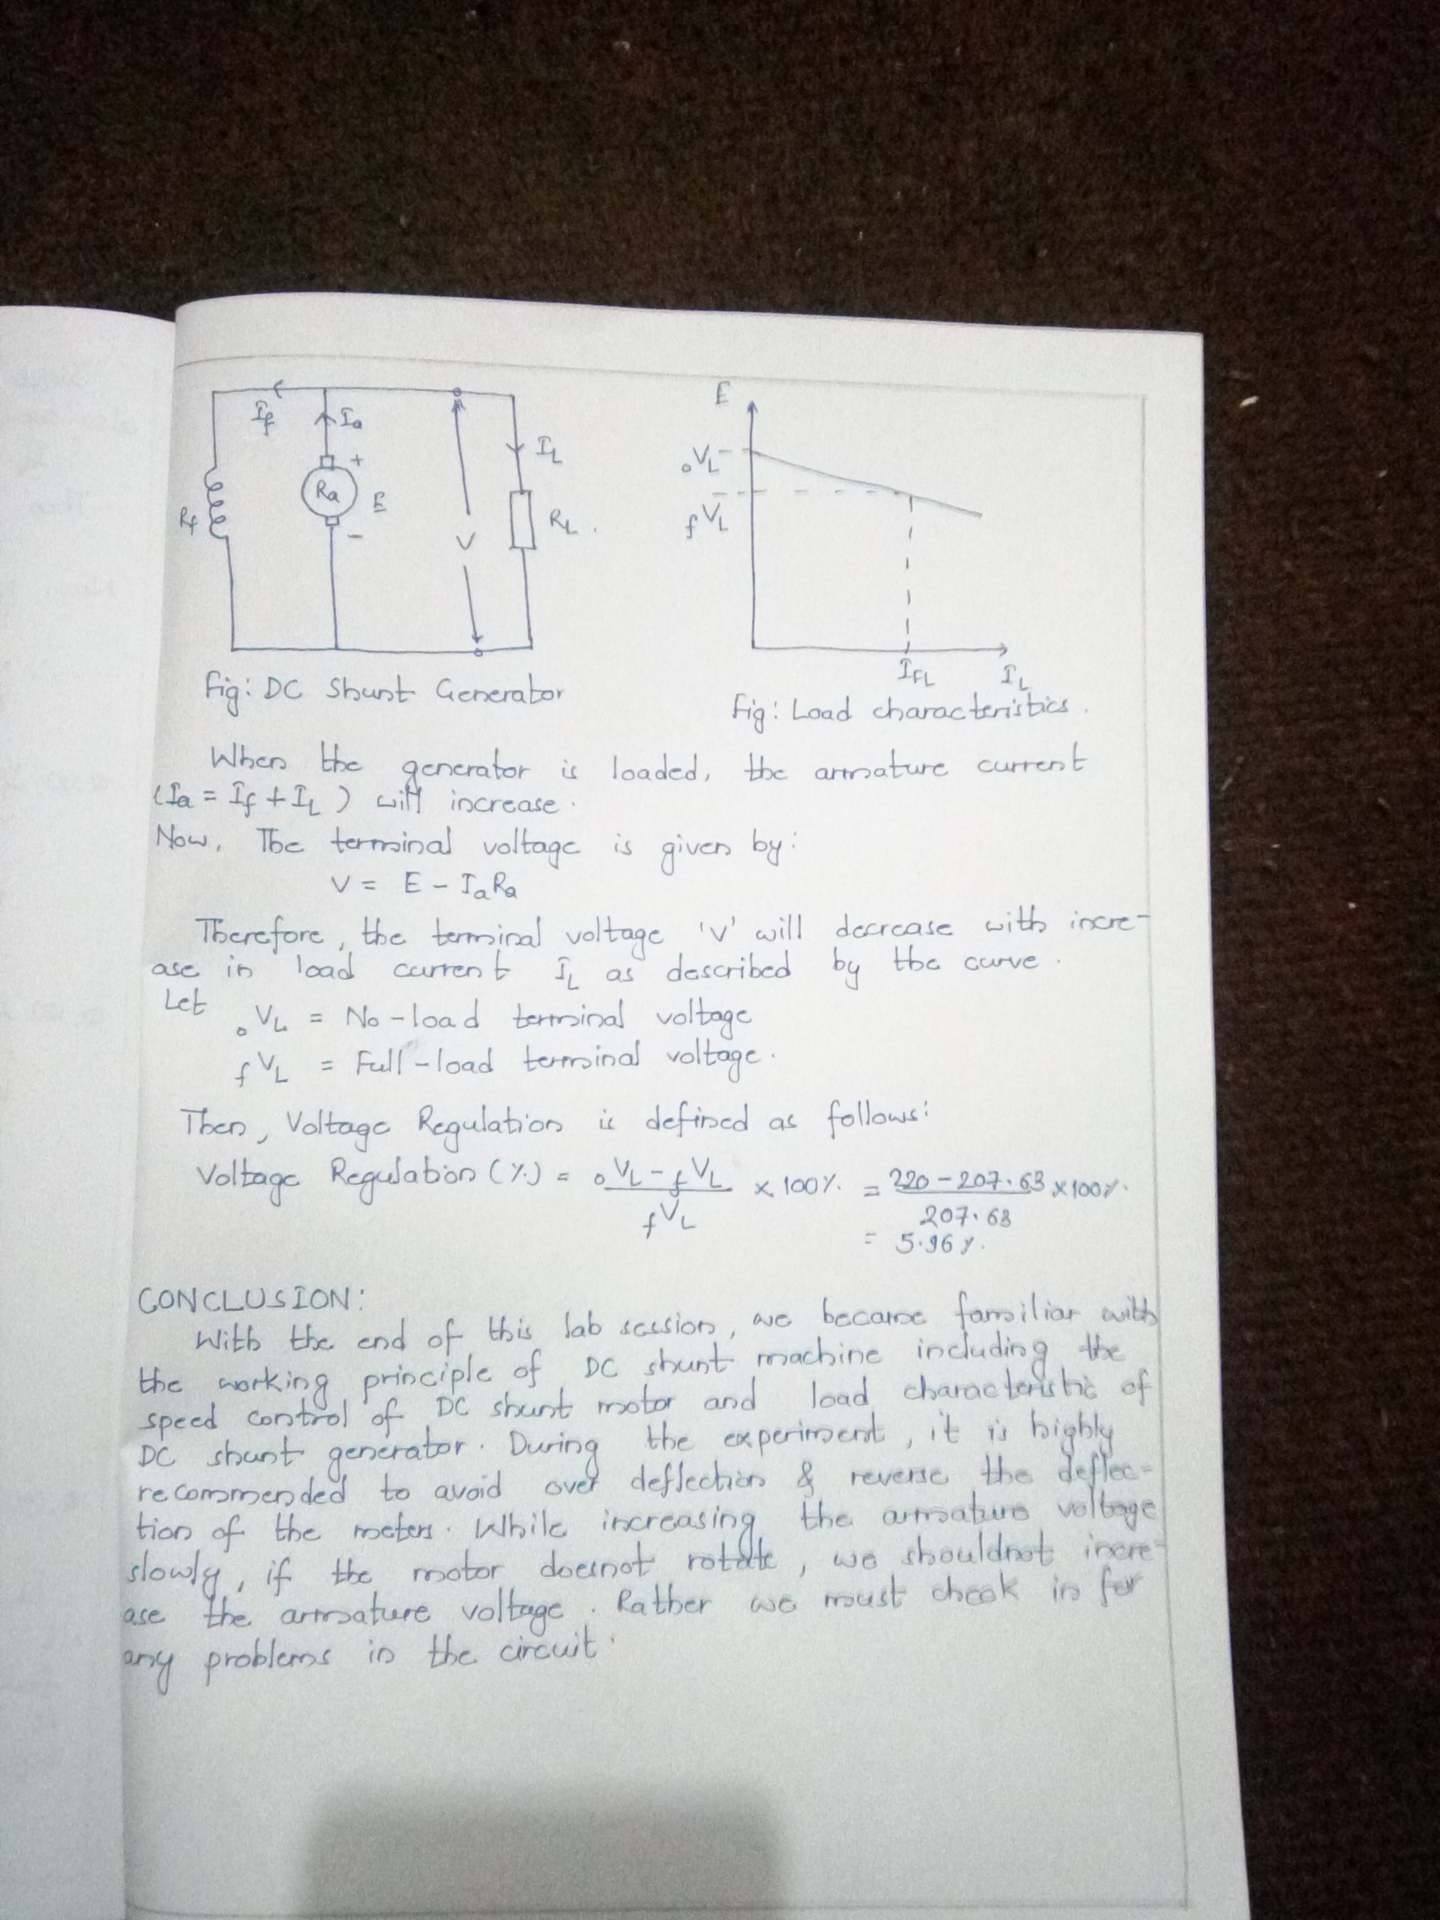 If
Ia
+
Ra
E
-
Rf
V
IL
RL.
Fig: DC Shunt Generator
E
oVL
fVL
IFL
IL
Fig: Load characteristics.
When the generator is loaded, the armature current
(Ia = If + IL) will increase.
Now, The terminal voltage is given by:
V = E - IaRa
Therefore, the terminal voltage 'V' will decrease with incre-
ase in load current IL as described by the curve.
Let
oVL = No-load terminal voltage
fVL = Full-load terminal voltage.
Then, Voltage Regulation is defined as follows:
Voltage Regulation (%) = oVL - fVL / fVL × 100% = 220 - 207.63 / 207.63 × 100%.
= 5.96%.
CONCLUSION:
With the end of this lab session, we became familiar with
the working principle of DC shunt machine including the
speed control of DC shunt motor and load characteristic of
DC shunt generator. During the experiment, it is highly
recommended to avoid over deflection & reverse the deflec-
tion of the meters. While increasing the armature voltage
slowly, if the motor doesnot rotate, we shouldnot incre-
ase the armature voltage. Rather we must check in for
any problems in the circuit.